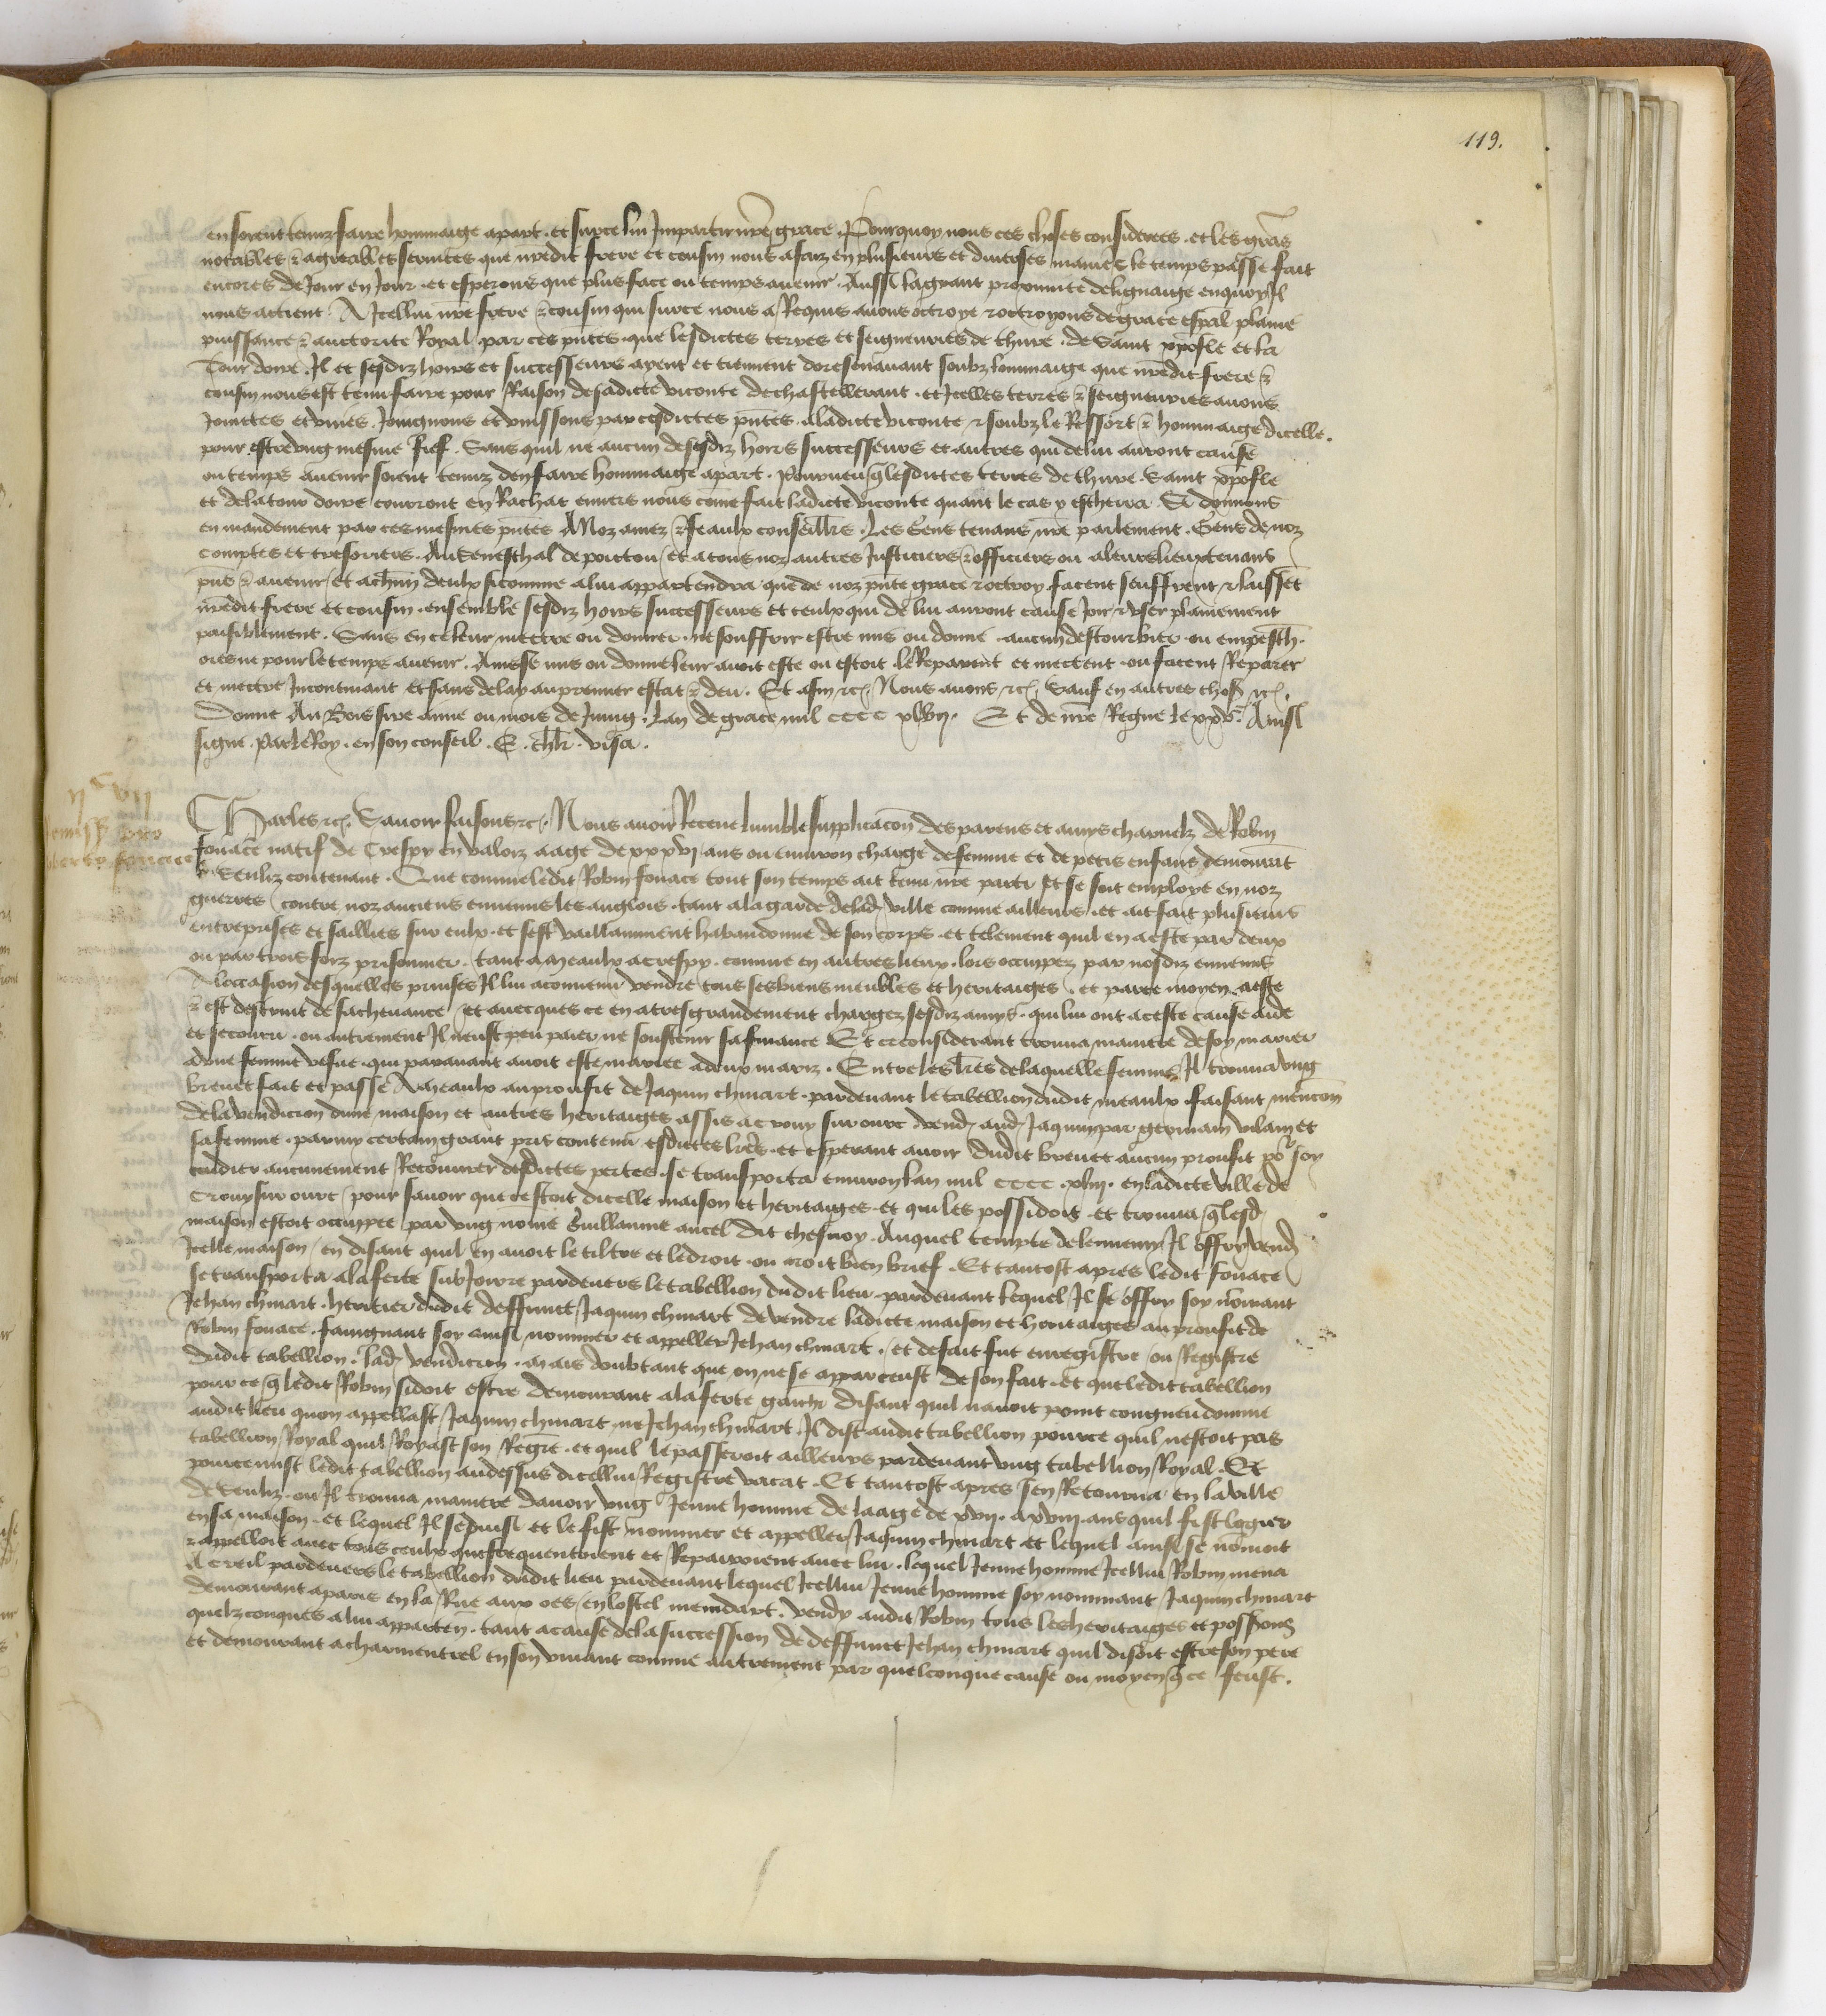 119.
en soient tenuz faire hommaige apart. et sur ce lui Impartir nre grace. Pourquoy nous ces choses considerees. et les grās
notables & agreables services que nredit frere et cousin nous a faiz en plusieurs et diverses manies le temps passe fait
encores de Jour en Jour. et esperons que plus face ou temps avenir. Aussi la grant proximite de lignaige en quoy Il
nous actient. A Icellui nre frere & cousin qui sur ce nous a Requis avons octroye & octroyons de grace espāl plaine
puissance & auctorite Royal par ces pntes. que lesdictes terres et seigneuries de thure. de Saint xpofle et la
Tour doire. Il et sesdiz hoirs et successeurs ayent et tiennent doresenavant soubz lommaige que nredit frere &
cousin nous est tenu faire pour Raison de sadicte viconte de chastellerault. et Icelles terres & seigneuries avons
Joinctes et unies. Joingnons et unissons par cesdictes pntes. a ladicte viconte & soubz le Ressort & hommaige dicelle.
pour estre ung mesme fief. Sans quil ne aucun de sesdiz hoirs successeurs et autres qui de lui auront cause
ou temps avenir soient tenuz den faire hommaige apart. Pourveu q lesdictes terres de thure. Saint xpofle
et de la tour doire courront en Rachat envers nous come fait ladicte viconte quant le cas y escherra. Si donnons
en mandement par ces mesmes pntes A noz amez & feaulx conseillrs. Les Gens tenans nre parlement. Gens de noz
comptes et tresoriers. Au Seneschal de poictou / et a tous noz autres Justiciers & officiers ou a leurs lieuxtenans
pns & avenir / et a chūn deulx sicomme a lui appartendra que de noz pnte grace & octroy facent seuffrent & laissēt
nredit frere et cousin. ensemble sesdiz hoirs successeurs et ceulx qui de lui auront cause Joir & user plainement
paisiblement. Sans en ce leur mectre ou donner. ne souffrir estre mis ou donne. aucun destourbier. ou empesch.
ores ne pour le temps avenir. Aincois se mis ou donne leur avoit este ou estoit. le Reparent et mectent. ou facent Reparer
et mectre Incontinant et sans delay au premier estat & deu. Et afin &c. Nous avons &c. Sauf en autres choß &c.
Donne Au Bois sire ame ou mois de Juing. Lan de grace mil cccc xlvij. Et de nre Regne le xxve. Ainsi
signe. Par le Roy. en son conseil. E. chlr. visa.
ijc vij
Remiss pro
Roberto fouace
Charles &c. Savoir faisons &c. Nous avoir Receue lumble supplicacōn des parens et amys charnelz de Robin
fouace natif de Crespy en valoiz aage de xxxvi ans ou environ charge de femme et de petis enfans demourāt
a Senliz contenant. Que comme ledit Robin fouace tout son temps ait tenu nre parti et se soit employe en noz
guerres / contre noz anciens ennemis les anglois. tant a la garde de lad ville comme ailleurs. et ait fait plusieurs
entreprises et saillies sur eulx. et sest vaillamment habandonne de son corps. et telement quil en a este par deux
ou par trois foiz prisonnier. tant a meaulx a crespy. comme en autres lieux. lors occuppez par nosdiz ennemis
A loccasion desquelles prinses Il lui a convenu vendre tous ses biens meubles et heritaiges. et par ce moyen a este
& est destruit de sa chevance / et avecques ce en a tresgrandement chargez sesdiz amys. qui lui ont a ceste cause aide
et secouru. ou autrement Il neust peu paier ne soustenir sa finance Et ce considerant trouva maniere de soy marier
a une femme vesve. qui paravant avoit este mariee a deux mariz. Entre les lres de laquelle femme Il trouva ung
brevet fait et passe A meaulx au proufit de Jaquin chmart. pardevant le tabellion dudit meaulx. faisant mencōn
de la vendicion dune maison et autres heritaiges assis a crouy sur ourc vend aud Jaquin par germain vilain et
sa femme. parmy certain grant pris contenu esdictes lres. et esperant avoir dudit brevet aucun proufit po soy
cuidier aucunement Recouvrer desdictes pertes. se transporta environ lan mil cccc. xliij. en ladicte ville de
Crouy sur ourc / pour savoir que cestoit dicelle maison et heritaiges. et qui les possidoit. et trouva q lesd
maison estoit occuppee par ung nōme Guillaume ancel dit chesnoy. Auquel tempte de lennemy Il offry vendr
Icelle maison / en disant quil en avoit le tiltre et le droit. ou auroit bien brief. Et tantost apres ledit fouace
se transporta a la ferte sub Jouere pardevers le tabellion dudit lieu. pardevant lequel Il se offry soy nōmant
Jehan chmart. heritier dudit deffunct Jaquin chmart de vendre ladicte maison et heritaiges au proufit de
Robin fouace. faingnant soy ainsi nommer et appeller Jehan chmart. et de fait fut enregistre / ou Registre
dudit tabellion. lad vendicion. mais doubtant que on ne se apparceust de son fait. et que ledit tabellion
pour ce q ledit Robin disoit estre demourant a la ferte gauch disant quil navoit point congneu domme
audit lieu quon appellast Jaquin chmart ne Jehan chmart. Il dist audit tabellion pource quil nestoit pas
tabellion Royal quil Royast son Regrē. et quil le passeroit ailleurs pardevant ung tabellion Royal. Et
pource mist ledit tabellion au dessus dicellui Registre vacat. Et tantost apres sen Retourna en la ville
de Senliz. ou Il trouva maniere davoir ung Jeune homme de laage de xvij. a xviij ans quil fist logier
en sa maison. et lequel Il seduisi. et le fist nommer et appeller Jaquin chmart et lequel ainsi se nōmoit
& appelloit avec tous ceulx qui frequentoient et Repairoient avec lui. lequel Jeune homme Icellui Robin mena
A creil pardevers le tabellion dudit lieu pardevant lequel Icellui Jeune homme soy nommant Jaquin chmart
demourant a paris en la Rue aux oes / en lostel meindart. vendy audit Robin tous les heritaiges et possions
quelzconques a lui apparten. tant a cause de la succession de deffunct Jehan chmart quil disoit estre son pere
et demourant a charmentrel en son vivant comme autrement par quelconque cause ou moyen q ce feust.